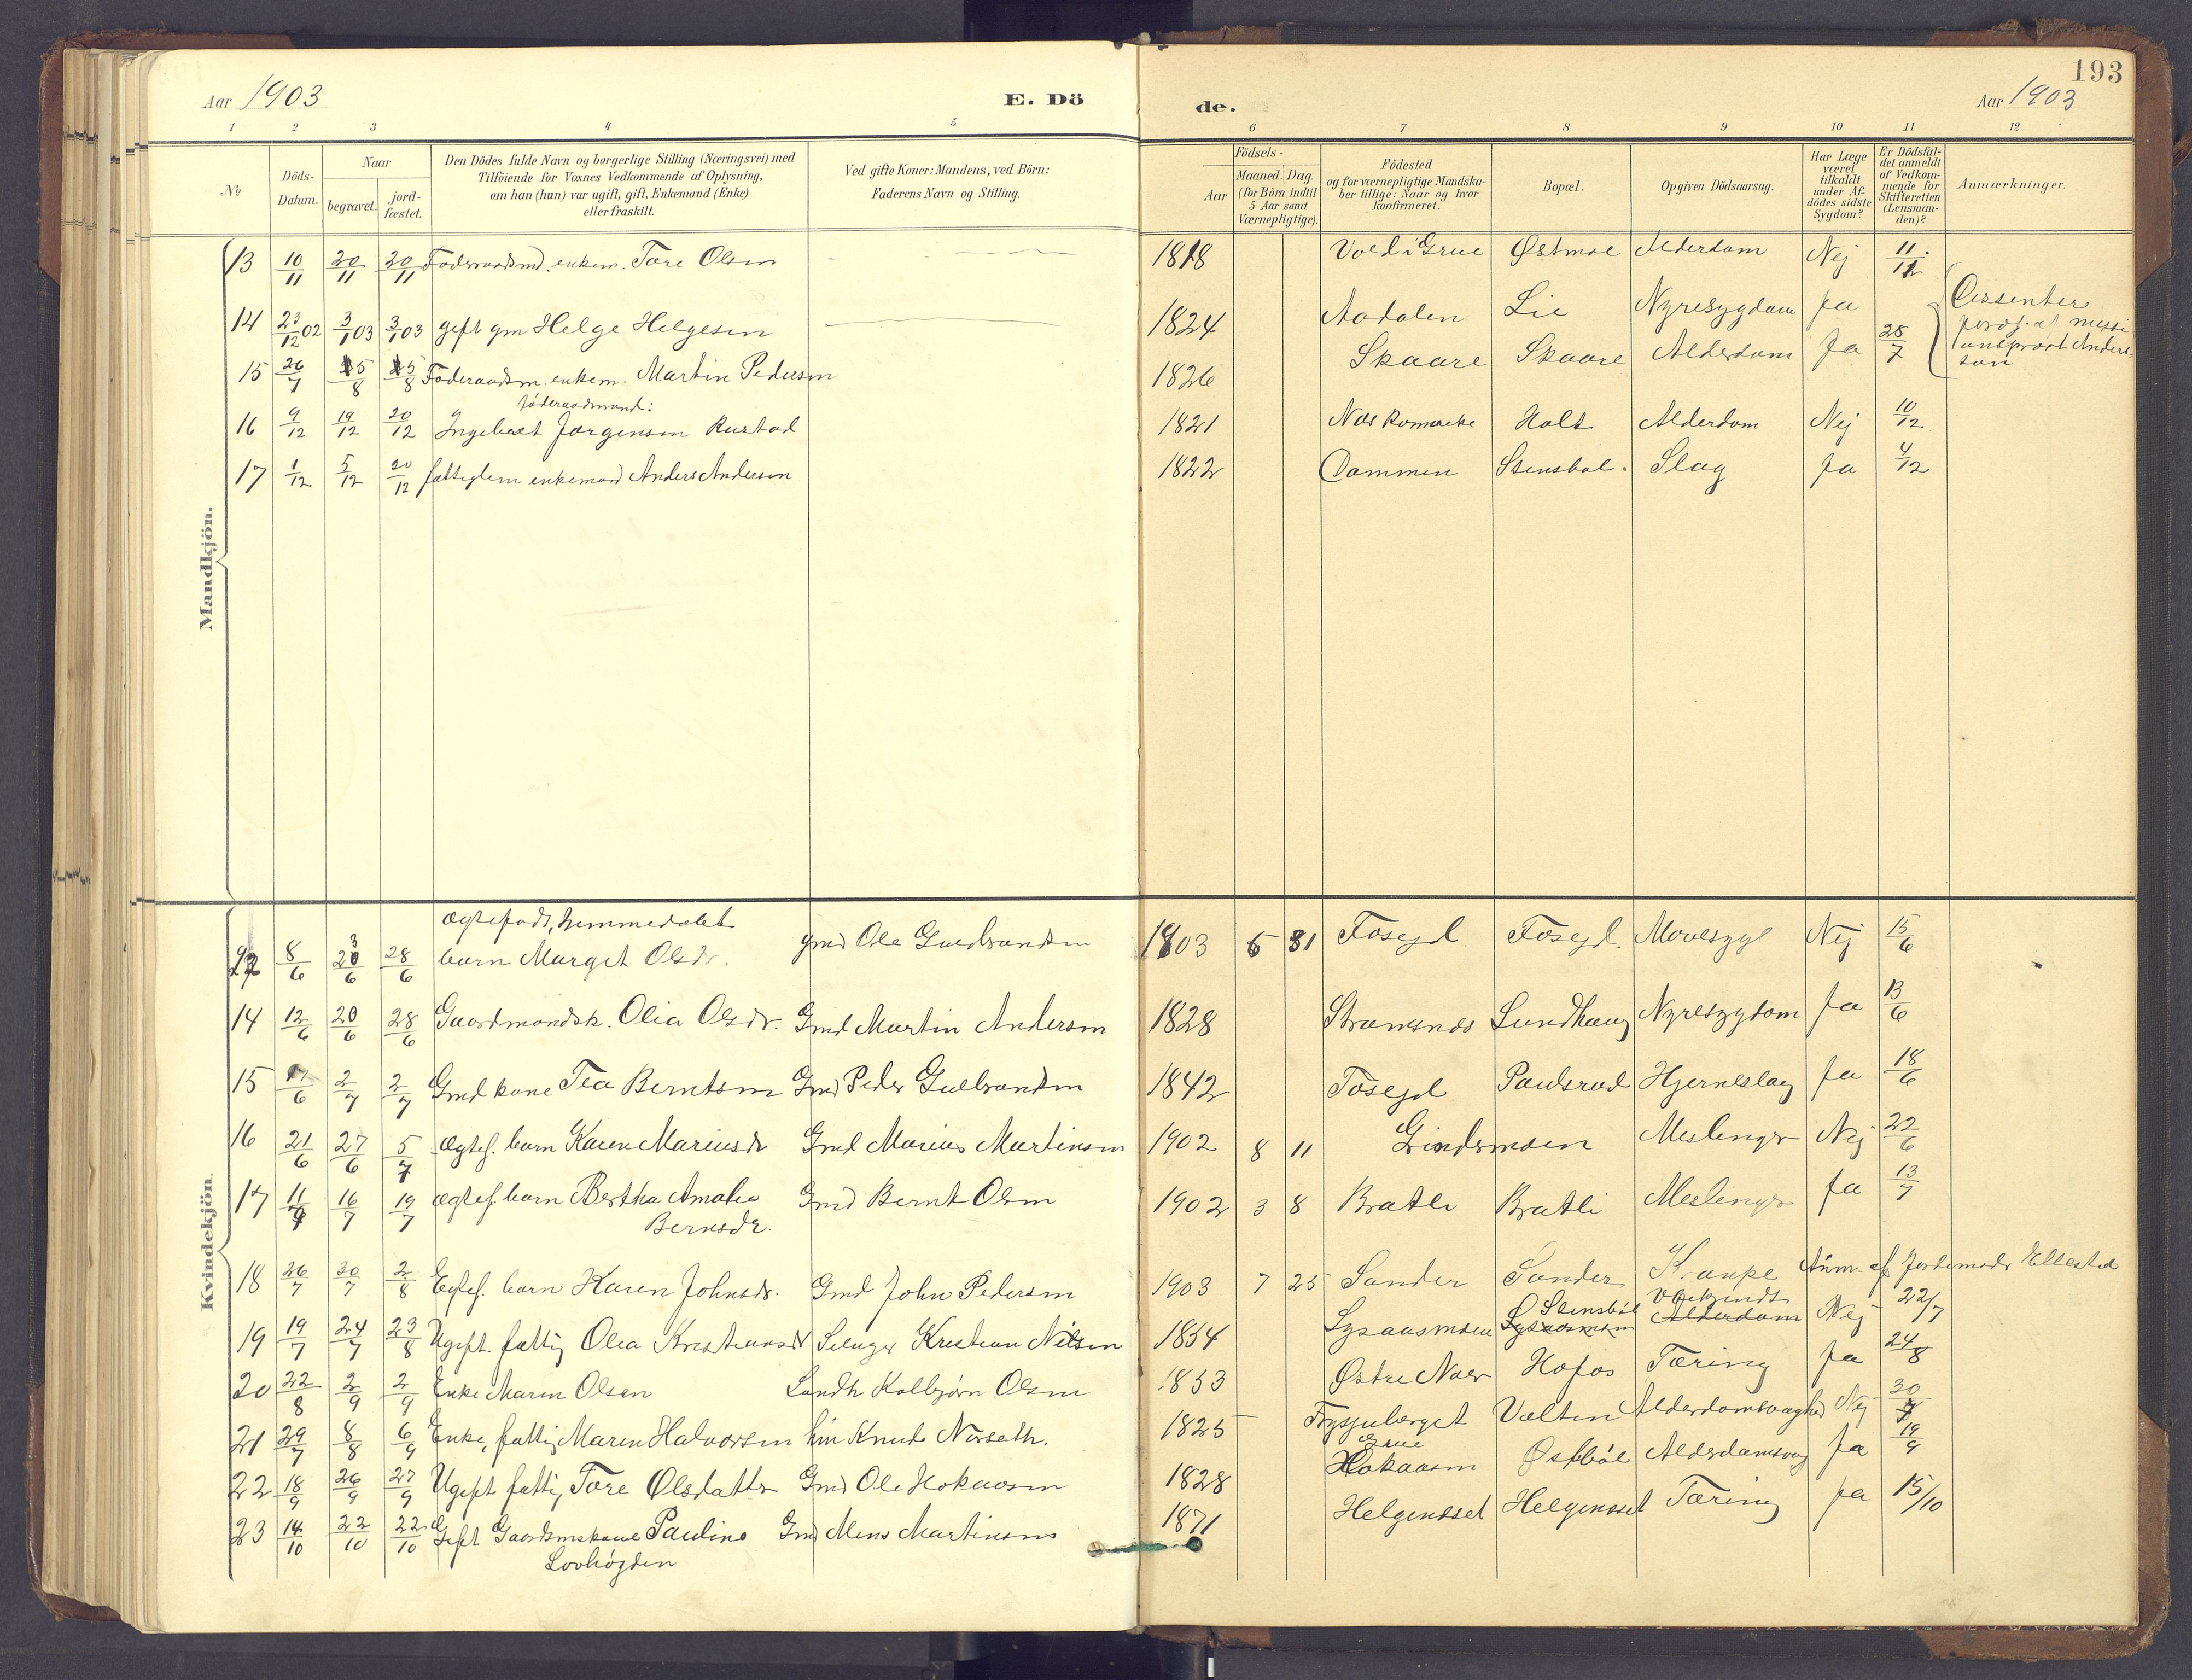 193
Aar 1903
E. Dö
de.
Aar 1903
1 2 3 4 5 6 7 8 9 10 11 12
№
Döds-Datum.
Naar
begravet.
jord-fæstet.
Den Dödes fulde Navn og borgerlige Stilling (Næringsvei) med
Tilföiende for Voxnes Vedkommende af Oplysning,
om han (hun) var ugift, gift, Enkemand (Enke)
eller fraskilt.
Ved gifte Koner: Mandens, ved Börn:
Faderens Navn og Stilling.
Födsels-
Aar
Maaned. Dag.
(for Börn indtil
5 Aar samt
Værnepligtige).
Födested
og for værnepligtige Mandska-
ber tillige: Naar og hvor
konfirmeret.
Bopæl.
Opgiven Dödsaarsag.
Har Læge
været
tilkaldt
under Af-
dödes sidste
Sygdom?
Er Dödsfal-
det anmeldt
af Vedkom-
mende for
Skifteretten
(Lensman-
den)?
Anmærkninger.
Mandkjön.
13 10/11 20/11 20/11 Föderaadsmd. enkem. Tore Olsen 1818 Vold i Grue Østmoe Alderdom Nej 11/11
14 23/12 02 3/1 03 3/1 03 gift gm Helge Helgesen 1824 Aadalen Lie Nyresygdom Ja Dissenter
15 26/7 5/8 5/8 Föderaadsm. enkem. Martin Pedersen 1826 Skaare Skaare Alderdom Ja 28/7
föderaadmand:
16 9/12 19/12 20/12 Ingebret Jørgensen Rustad 1821 Holt Alderdom Nej 10/12
17 1/12 5/12 20/12 fattiglem enkemand Anders Andersen 1822 Dammen Stensbøl. Slag Ja 4/12
Kvindekjön.
ægtefødt, hjemmedøbt
8/6 28/6 barn Marget Olsdr. gmd Ole Gudbrandsen 1903 Fosejd Fosejd. Mavesyge Nej 15/6
14 12/6 20/6 28/6 Gaardmandsk. Olia Olsdr. Gmd Martin Andersen 1828 Strømsnæs Sundhaug Nyresygdom Ja 13/6
15 2/7 2/7 Gmd kone Tea Berntsen Gmd Peder Gulbrandsen 1842 Fosejd Paulsrud Hjerneslag Ja 18/6
16 21/6 27/6 5/7 Ægtef. barn Karen Mariusdr Gmd Marius Martinsen 1902 8 11 Grindermoen Meslinger Nej 22/6
17 16/7 19/7 ægtef. barn Bertha Amalie Gmd Bernt Olsen 1902 3 8 Bratli Bratli Meslinger Ja 13/7
Bernsdr.
18 26/7 30/7 2/8 Egtef. barn Karen Johnsdr. Gmd John Pedersen 1903 7 25 Sander Sander Krampe Anm. af Jordemoder Ellested
19 19/7 24/7 23/8 Ugift. fattig Olea Kristiansdr Kristian Nilsen 1854 Lysaasmoen Stensbøl Alderdom Nej 22/7
20 22/8 2/9 2/9 Enke Maren Olsen Landh Kolbjørn Olsen 1853 Østre Næs Hofos Tæring Ja 24/8
21 29/7 8/8 6/9 Enke, fattig Maren Halvorsen Knud Nørseth. 1825 Frysjuberget Valten Alderdomsvaghed Nej 30/7
Grue
22 18/9 26/9 27/9 Ugift fattig Tore Olsdatter Gmd Ole Hokaasen 1828 Hokaasen Østbøl Alderdomsvag Ja 19/9
23 14/10 22/10 22/10 Gift Gaardmskone Pauline Gmd Mens Martinsen 1871 Helgenesset Helgenesset Tæring Ja 15/10
Lovhögden